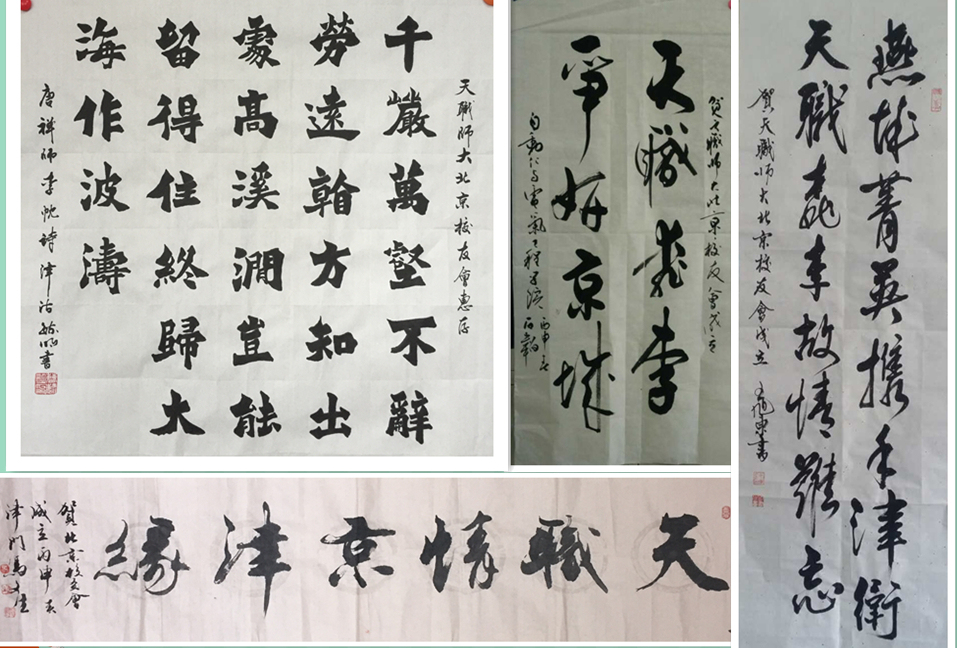 天職師大北京校友會惠存
千巖萬壑不辭
勞遠看方知出
處高溪澗豈能
留得住終歸大
海作波濤
唐禅師李忱詩 津沽 書
賀天職師大北京校友會成立
天職桃李
爭妍京城
自動化與電氣工程學院
丙申春
燕城菁英攜手津衛
天職桃李故情難忘
賀天職師大北京校友會成立 書
天職情京津緣
賀北京校友會
成立丙申春
津門馬